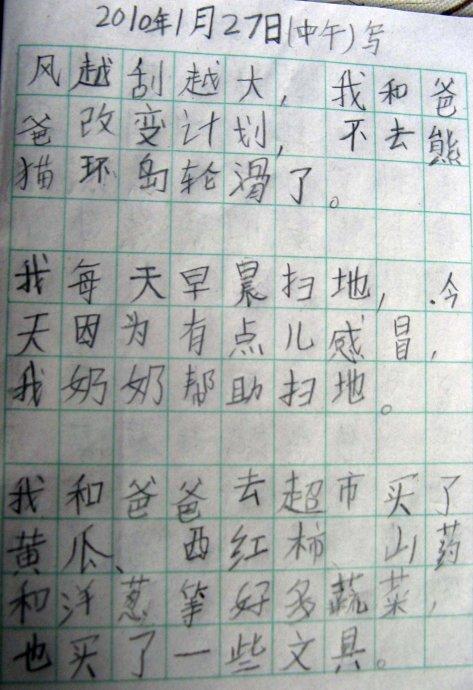 2010年1月27日(中午)写
风越刮越大，我和爸
爸改变计划，不去熊
猫环岛轮滑了。
我每天早晨扫地，今
天因为有点儿感冒，
我奶奶帮助扫地。
我和爸爸去超市买了
黄瓜、西红柿、山药
和洋葱等好多蔬菜，
也买了一些文具。